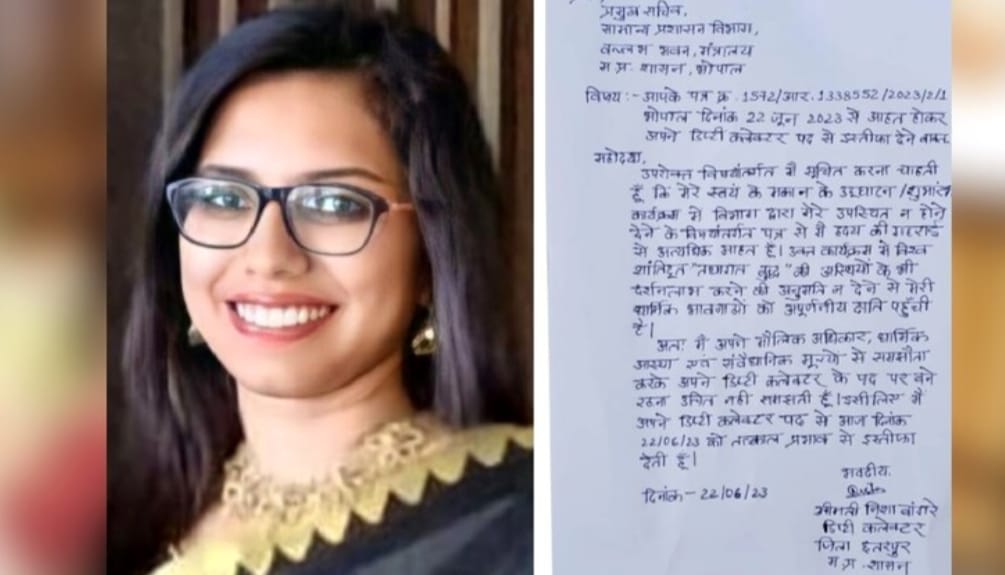 प्रमुख सचिव,
सामान्य प्रशासन विभाग,
वल्लभ भवन, मंत्रालय
म.प्र. शासन, भोपाल
विषय :- आपके पत्र क्र. 1572/आर.1338552/2023/2/1
भोपाल दिनांक 22 जून 2023 से आहत होकर
अपने डिप्टी कलेक्टर पद से इस्तीफा देने बाबत्
महोदया,
उपरोक्त विषयांतर्गत मैं सूचित करना चाहती
हूँ कि मेरे स्वयं के मकान के उद्घाटन/शुभारंभ
कार्यक्रम में विभाग द्वारा मेरे उपस्थित न होने
देने के विषयांतर्गत पत्र से मैं हृदय की गहराई
से अत्यधिक आहत हूँ। उक्त कार्यक्रम में विश्व
शांतिदूत "तथागत बुद्ध" की अस्थियों के भी
दर्शनलाभ करने की अनुमति न देने से मेरी
धार्मिक भावनाओं को अपूर्णनीय क्षति पहुँची
है।
अतः मैं अपने मौलिक अधिकार, धार्मिक
आस्था एवं संवैधानिक मूल्यों से समझौता
करके अपने डिप्टी कलेक्टर के पद पर बने
रहना उचित नहीं समझती हूँ। इसीलिए मैं
अपने डिप्टी कलेक्टर पद से आज दिनांक
22/06/23 को तत्काल प्रभाव से इस्तीफा
देती हूँ।
भवदीय
दिनांक - 22/06/23
श्रीमती निशा बांगरे
डिप्टी कलेक्टर
जिला छतरपुर
म.प्र. शासन